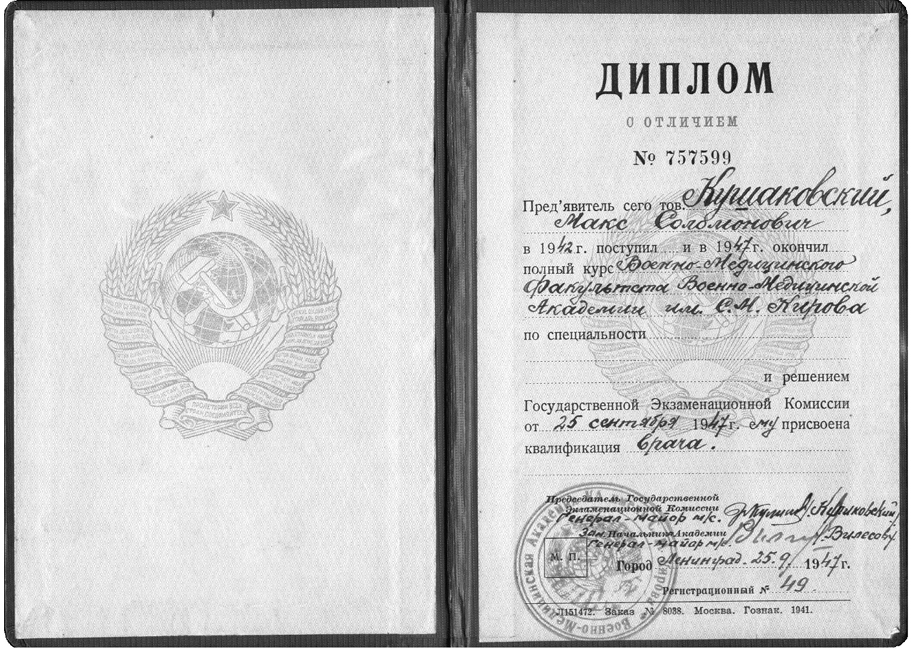 ДИПЛОМ
С ОТЛИЧИЕМ
№ 757599
Пред'явитель сего тов. Кушаковский,
Макс Соломонович
в 1942 г. поступил и в 1947 г. окончил
полный курс Военно-Медицинского
Факультета Военно-Медицинской
Академии им. С.М. Кирова
по специальности
и решением
Государственной Экзаменационной Комиссии
от 25 сентября 1947 г. ему присвоена
квалификация врача.
Председатель Государственной
Экзаменационной Комиссии
Генерал-майор м/с.
Зам. Начальник Академии
Генерал-майор м/с.
М. П.
Город Ленинград. 25.9. 1947 г.
Регистрационный № 49.
Л151472. Заказ № 8038. Москва. Гознак. 1941.
Военно-Медицинская Академия